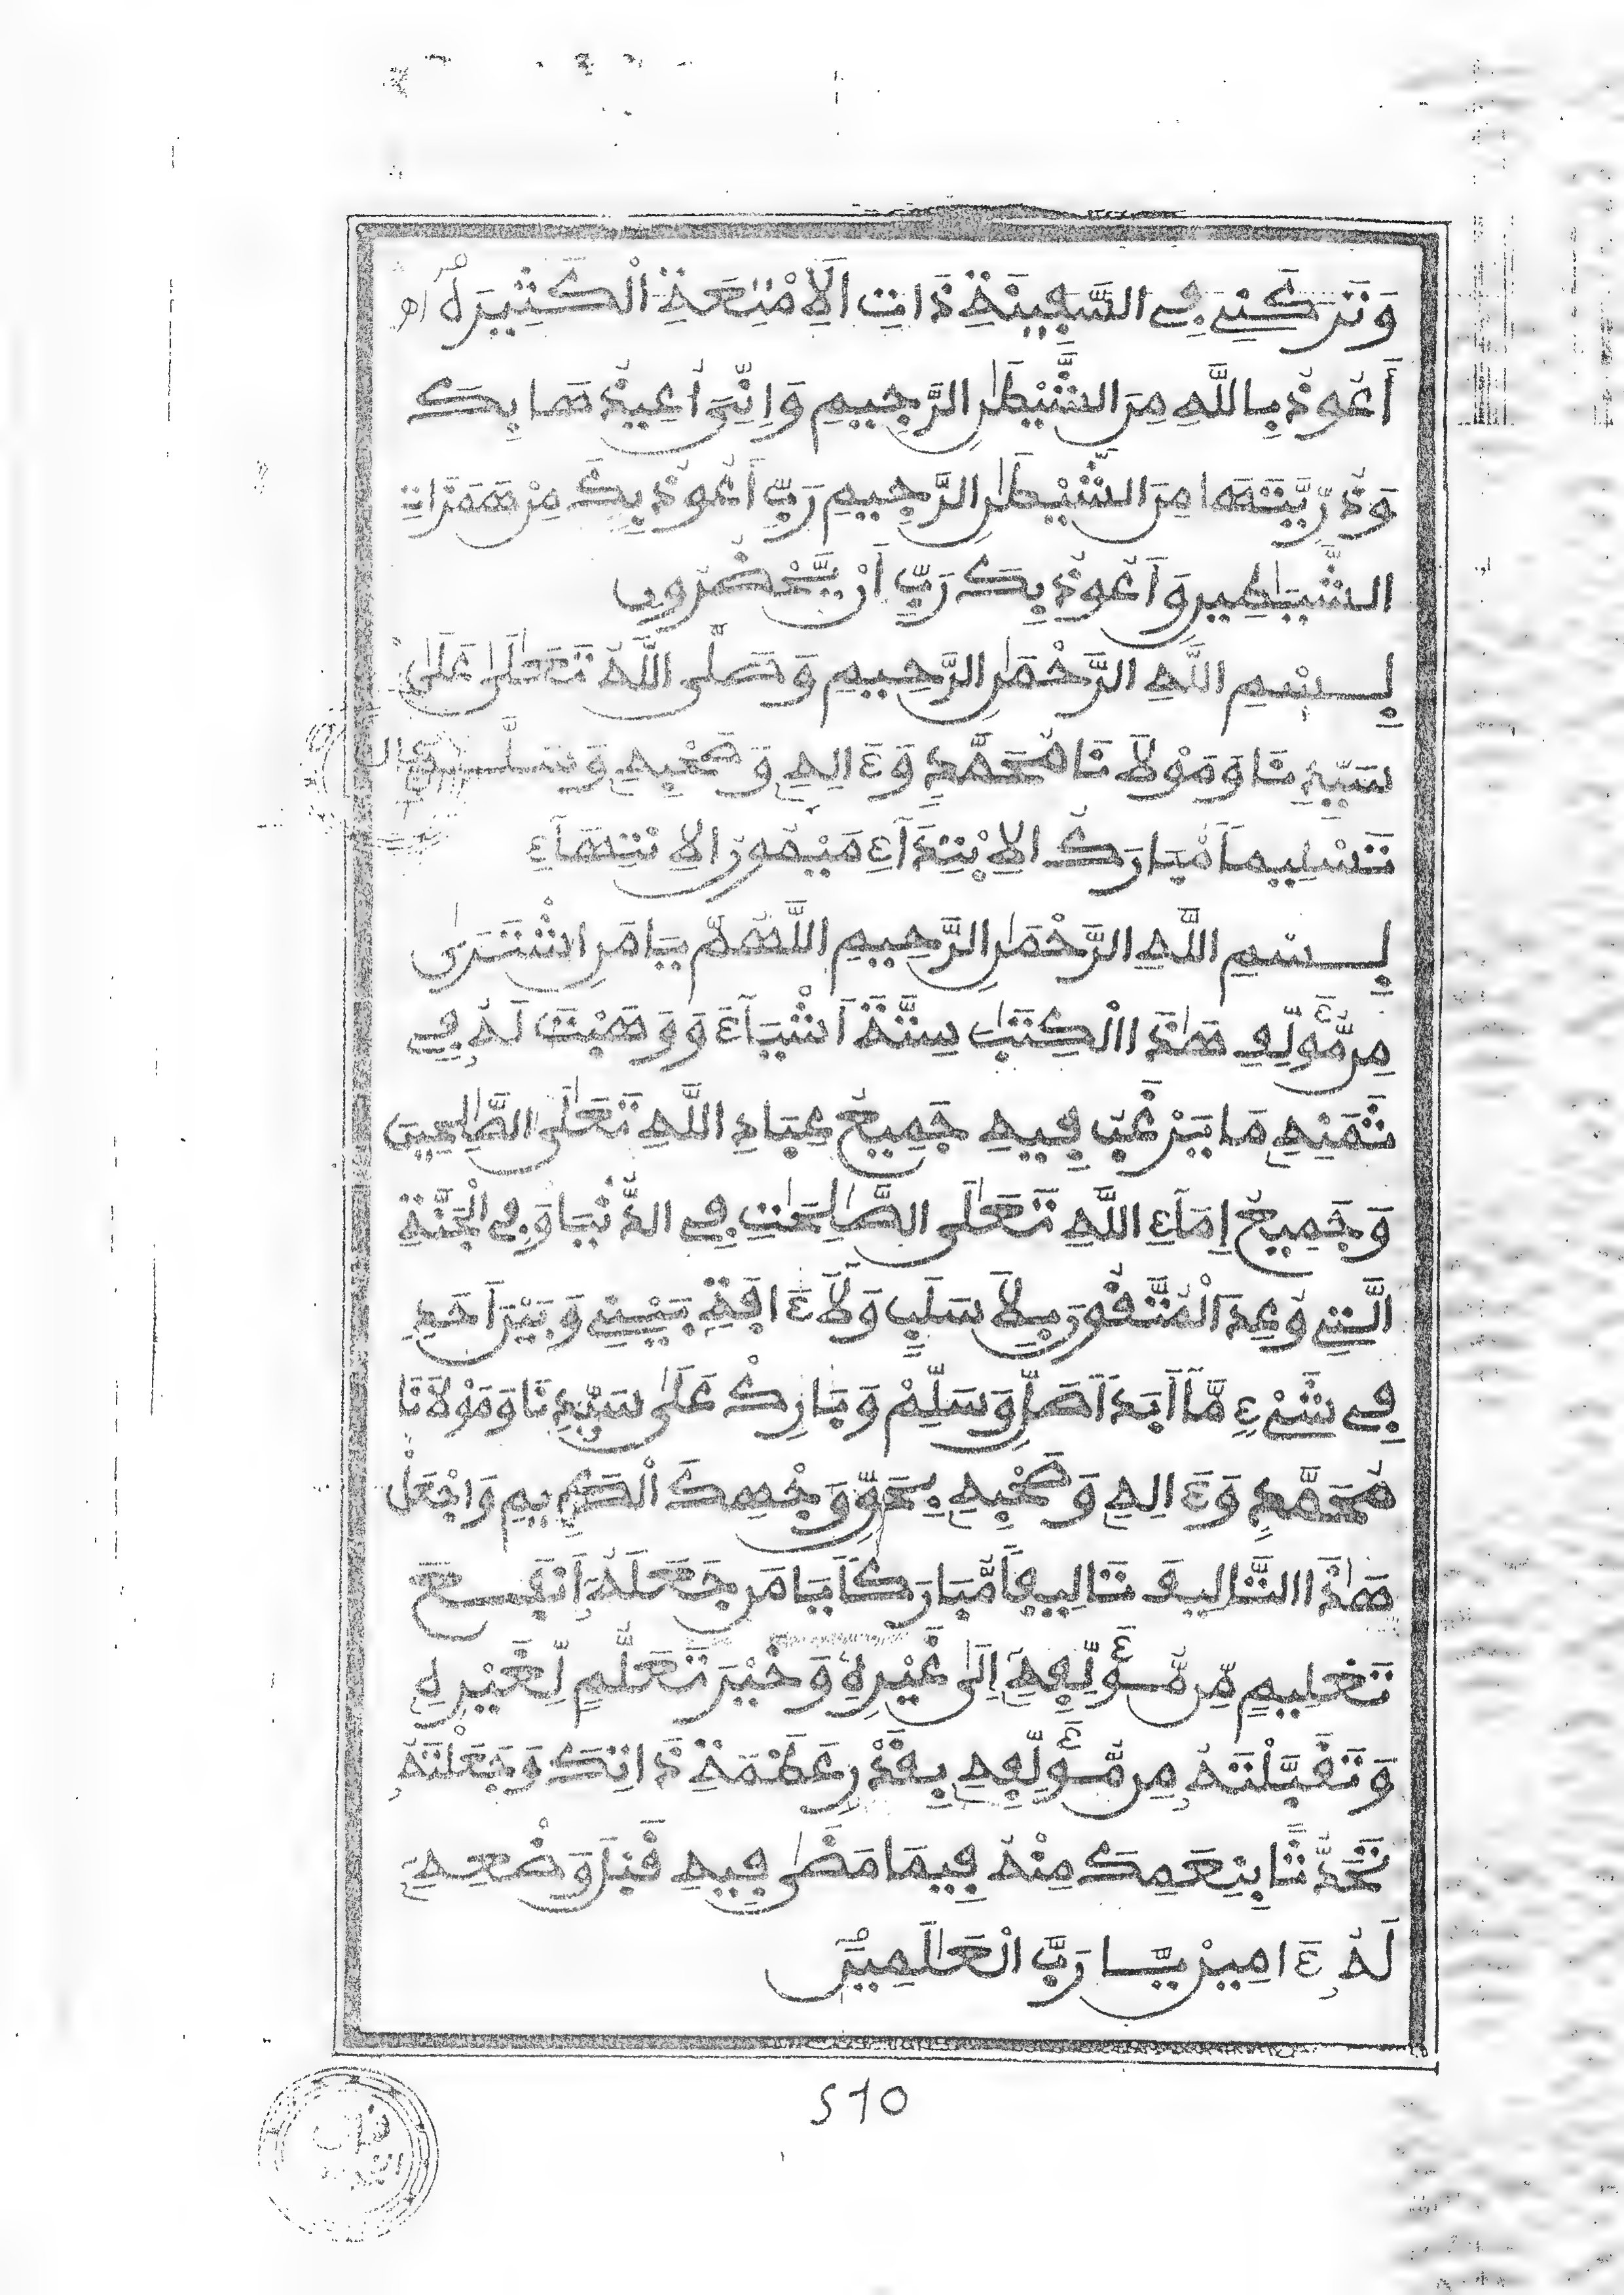 وَتَرَكَنِے فِے السَّفِينَةِ ذَاتِ الَامْتِعَةِ الْكَثِيرَهْ اهـ
أَعُوذُ بِاللَّهِ مِنَ الشَّيْطَٰنِ الرَّجِيمِ وَإِنِّيَ أُعِيذُهَا بِكَ
وَذُرِّيَّتَهَا مِنَ الشَّيْطَٰنِ الرَّجِيمِ رَبِّ أَعُوذُ بِكَ مِنْ هَمَزَاتِ
الشَّيَٰطِينِ وَأَعُوذُ بِكَ رَبِّ أَنْ يَّحْضُرُونِ
بِسْمِ اللَّهِ الرَّحْمَٰنِ الرَّحِيمِ وَصَلَّى اللَّهُ تَعَٰلَىٰ عَلَىٰ
سَيِّدِنَا وَمَوْلَانَا مُحَمَّدٍ وَءَالِهِ وَصَحْبِهِ وَسَلَّمَ
تَسْلِيماً مُّبَارَكَ الِابْتِدَآءِ مَيْمُونَ الِانْتِهَآءِ
بِسْمِ اللَّهِ الرَّحْمَٰنِ الرَّحِيمِ اللَّهُمَّ يَا مَنِ اشْتَرَىٰ
مِن مُّؤَلِّفِ هَٰذَا الْكِتَٰبِ سِتَّةَ أَشْيَآءَ وَوَهَبْتَ لَهُ فِے
ثَمَنِهِ مَا يَرْغَبُ فِيهِ جَمِيعُ عِبَادِ اللَّهِ تَعَٰلَى الصَّٰلِحِينَ
وَجَمِيعُ إِمَآءِ اللَّهِ تَعَٰلَى الصَّٰلِحَٰتِ فِے الدُّنْيَا وَفِے الْجَنَّةِ
الَّتِے وُعِدَ الْمُتَّقُونَ بِلَا سَلَبٍ وَلَا ءَافَةٍ بَيْنِے وَبَيْنَ أَحَدٍ
فِے شَےْءٍ مَّا أَبَداً صَلِّ وَسَلِّمْ وَبَارِكْ عَلَىٰ سَيِّدِنَا وَمَوْلَانَا
مُحَمَّدٍ وَءَالِهِ وَصَحْبِهِ بِحَقِّ وَجْهِكَ الْكَرِيمِ وَاجْعَلْ
هَٰذَا التَّالِيفَ تَالِيفاً مُّبَارَكاً يَا مَن جَعَلَهُ أَنْفَعَ
تَعْلِيمٍ مِّن مُّؤَلِّفِهِ إِلَىٰ غَيْرِهِ وَخَيْرَ تَعَلُّمٍ لِّغَيْرِهِ
وَتَقَبَّلْتَهُ مِن مُّؤَلِّفِهِ بِقَدْرِ عَظَمَةِ ذَاتِكَ وَجَعَلْتَهُ
تَحَدُّثاً بِنِعَمِكَ مِنْهُ فِيمَا مَضَىٰ فِيهِ قَبْلَ وَضْعِهِ
لَهُ ءَامِينَ يَّا رَبَّ الْعَٰلَمِينَ
510